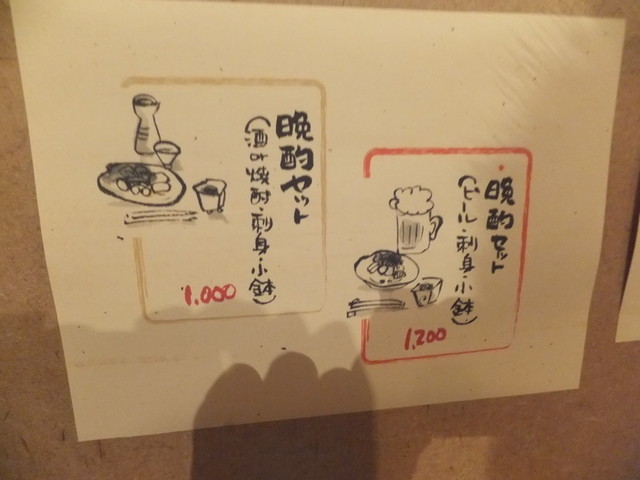 晩酌セット
(酒or焼酎・刺身・小鉢)
1,000
晩酌セット
(ビール・刺身・小鉢)
1,200